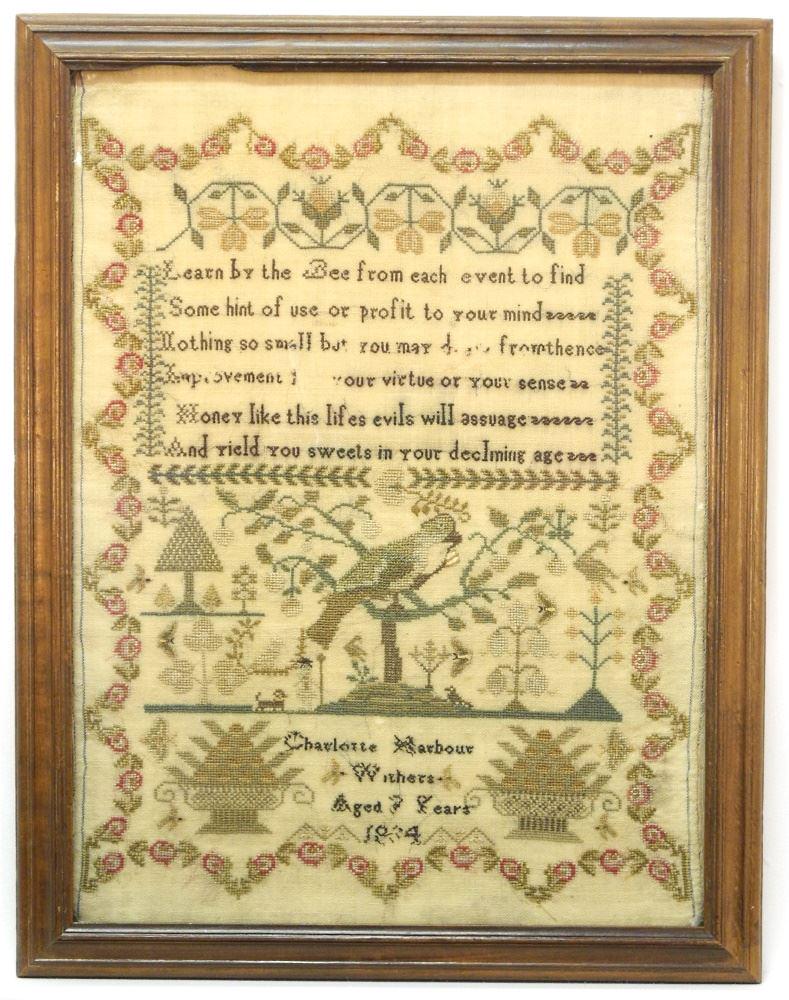 Learn by the Bee from each event to find
Some hint of use or profit to your mind
Nothing so small but you may fromthence
Improvement your virtue or your sense
Honey like this lifes evils will assuage
And yield you sweets in your declining age
Charlotte Harbour
Withers
Aged 7 Years